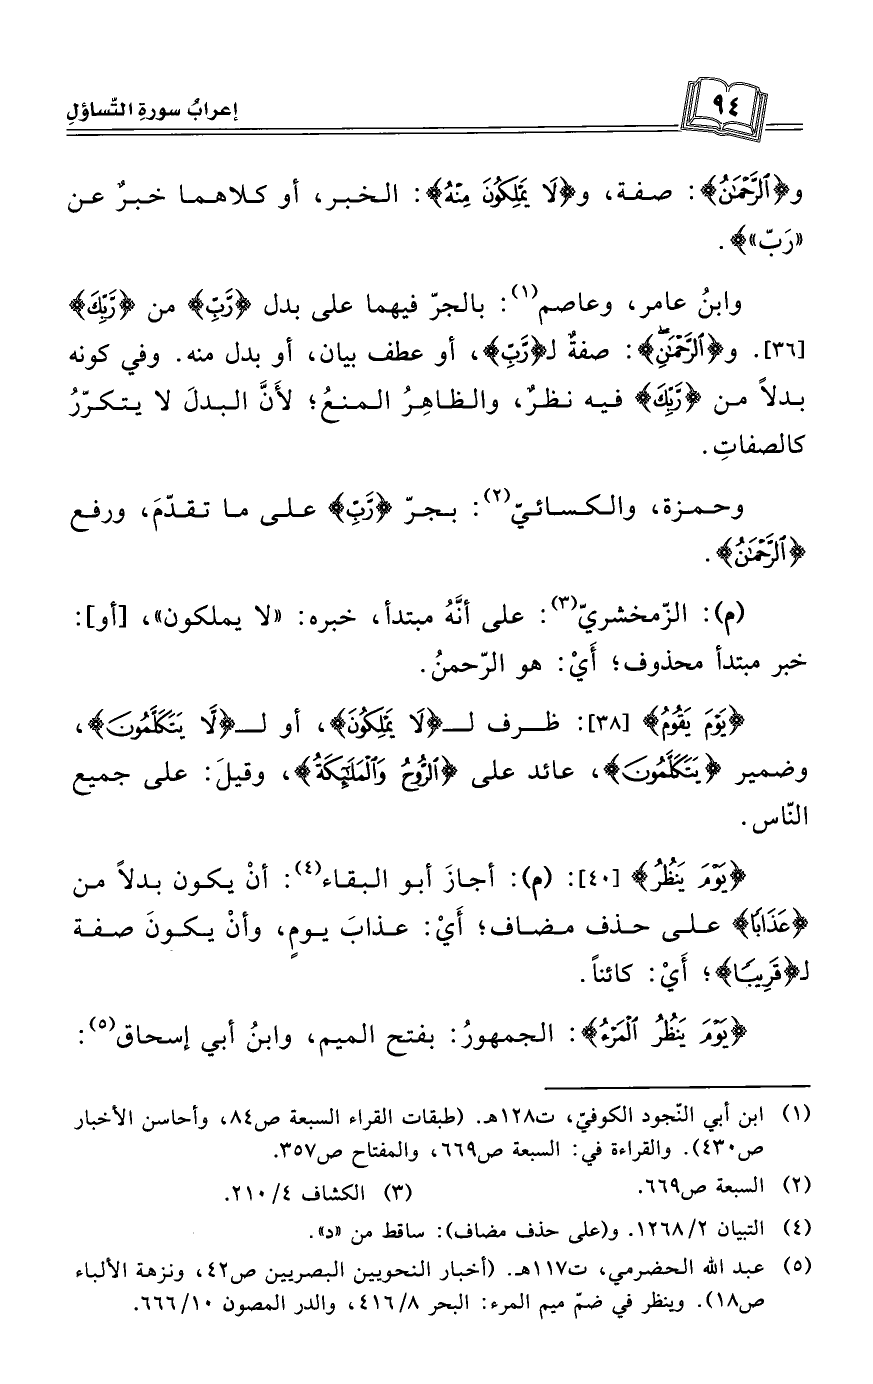 ٩٤
إعرابُ سورةِ التّساؤلِ
و﴿ٱلرَّحْمَٰنُ﴾: صفة، و﴿لَا يَمْلِكُونَ مِنْهُ﴾: الخبر، أو كلاهما خبرٌ عن
«رَبّ»﴾.
وابنُ عامر، وعاصم(١): بالجرّ فيهما على بدل ﴿رَّبِّ﴾ من ﴿رَّبِّكَ﴾
[٣٦]. و﴿ٱلرَّحْمَٰنِۖ﴾: صفةٌ لـ﴿رَّبِّ﴾، أو عطف بيان، أو بدل منه. وفي كونه
بدلاً من ﴿رَّبِّكَ﴾ فيه نظرٌ، والظاهِرُ المنعُ؛ لأنَّ البدلَ لا يتكرّرُ
كالصفاتِ.
وحمزة، والكسائيّ(٢): بجرّ ﴿رَّبِّ﴾ على ما تقدّمَ، ورفع
﴿ٱلرَّحْمَٰنُ﴾.
(م): الزّمخشريّ(٣): على أنَّهُ مبتدأ، خبره: «لا يملكون»، [أو]:
خبر مبتدأ محذوف؛ أيْ: هو الرّحمنُ.
﴿يَوْمَ يَقُومُ﴾ [٣٨]: ظرف لـ﴿لَا يَمْلِكُونَ﴾، أو لـ﴿لَّا يَتَكَلَّمُونَ﴾،
وضمير ﴿يَتَكَلَّمُونَ﴾، عائد على ﴿ٱلرُّوحُ وَٱلْمَلَٰٓئِكَةُ﴾، وقيلَ: على جميع
النّاس.
﴿يَوْمَ يَنظُرُ﴾ [٤٠]: (م): أجازَ أبو البقاء(٤): أنْ يكون بدلاً من
﴿عَذَابًا﴾ على حذف مضاف؛ أيْ: عذابَ يومٍ، وأنْ يكونَ صفة
لـ﴿قَرِيبًا﴾؛ أيْ: كائناً.
﴿يَوْمَ يَنظُرُ ٱلْمَرْءُ﴾: الجمهورُ: بفتح الميم، وابنُ أبي إسحاق(٥):
(١) ابن أبي النّجود الكوفيّ، ت١٢٨هـ. (طبقات القراء السبعة ص٨٤، وأحاسن الأخبار
ص٤٣٠). والقراءة في: السبعة ص٦٦٩، والمفتاح ص٣٥٧.
(٢) السبعة ص٦٦٩. (٣) الكشاف ٤/ ٢١٠.
(٤) التبيان ٢/ ١٢٦٨. و(على حذف مضاف): ساقط من «د».
(٥) عبد الله الحضرمي، ت١١٧هـ. (أخبار النحويين البصريين ص٤٢، ونزهة الألباء
ص١٨). وينظر في ضمّ ميم المرء: البحر ٨/ ٤١٦، والدر المصون ١٠/ ٦٦٦.